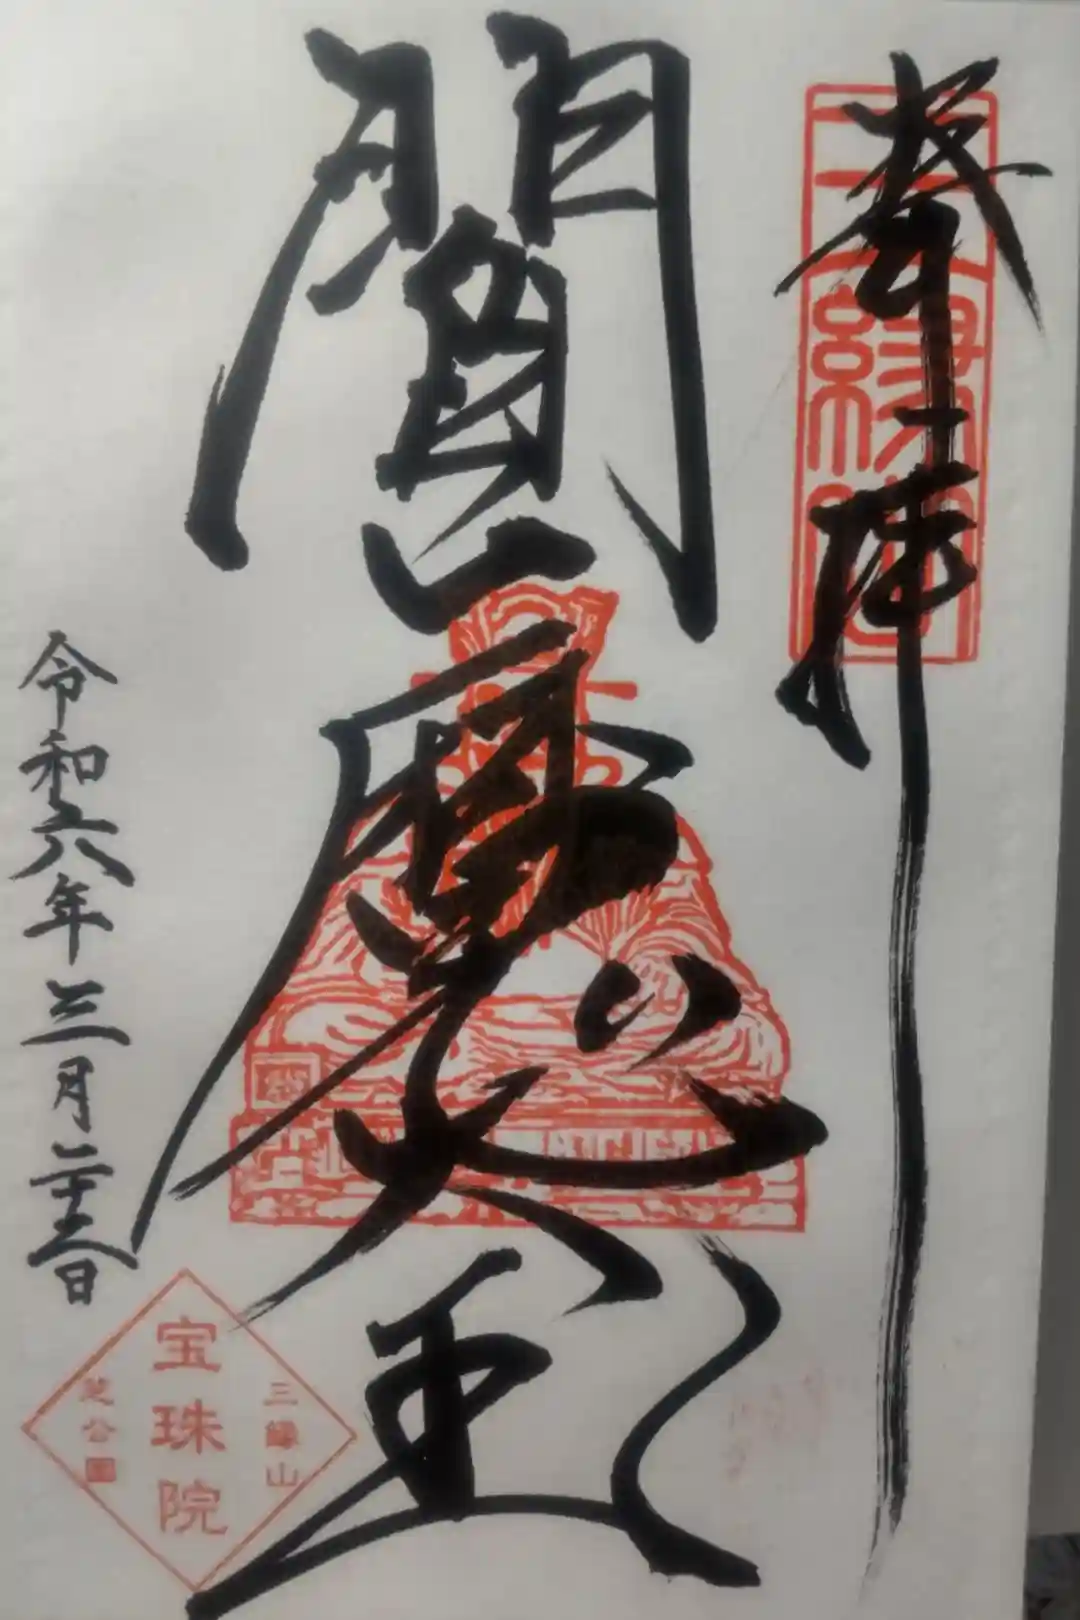 奉拝
三縁山
閻魔大王
令和六年三月二十二日
三縁山
宝珠院
芝公園